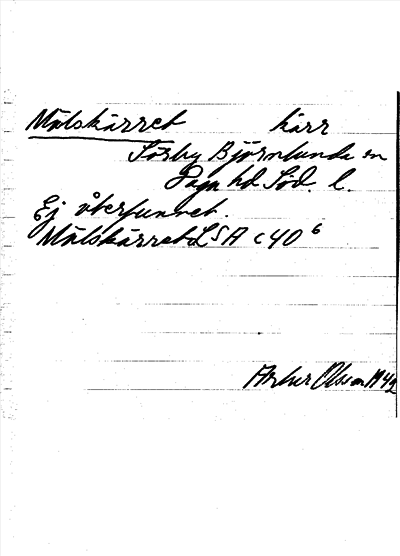 Mälskärret kärr
Sörby Björnlunda sn
Daga hd Söd. l.
Ej återfunnet.
Mälskärret LSA C 40 6
Arthur Olsson 1942